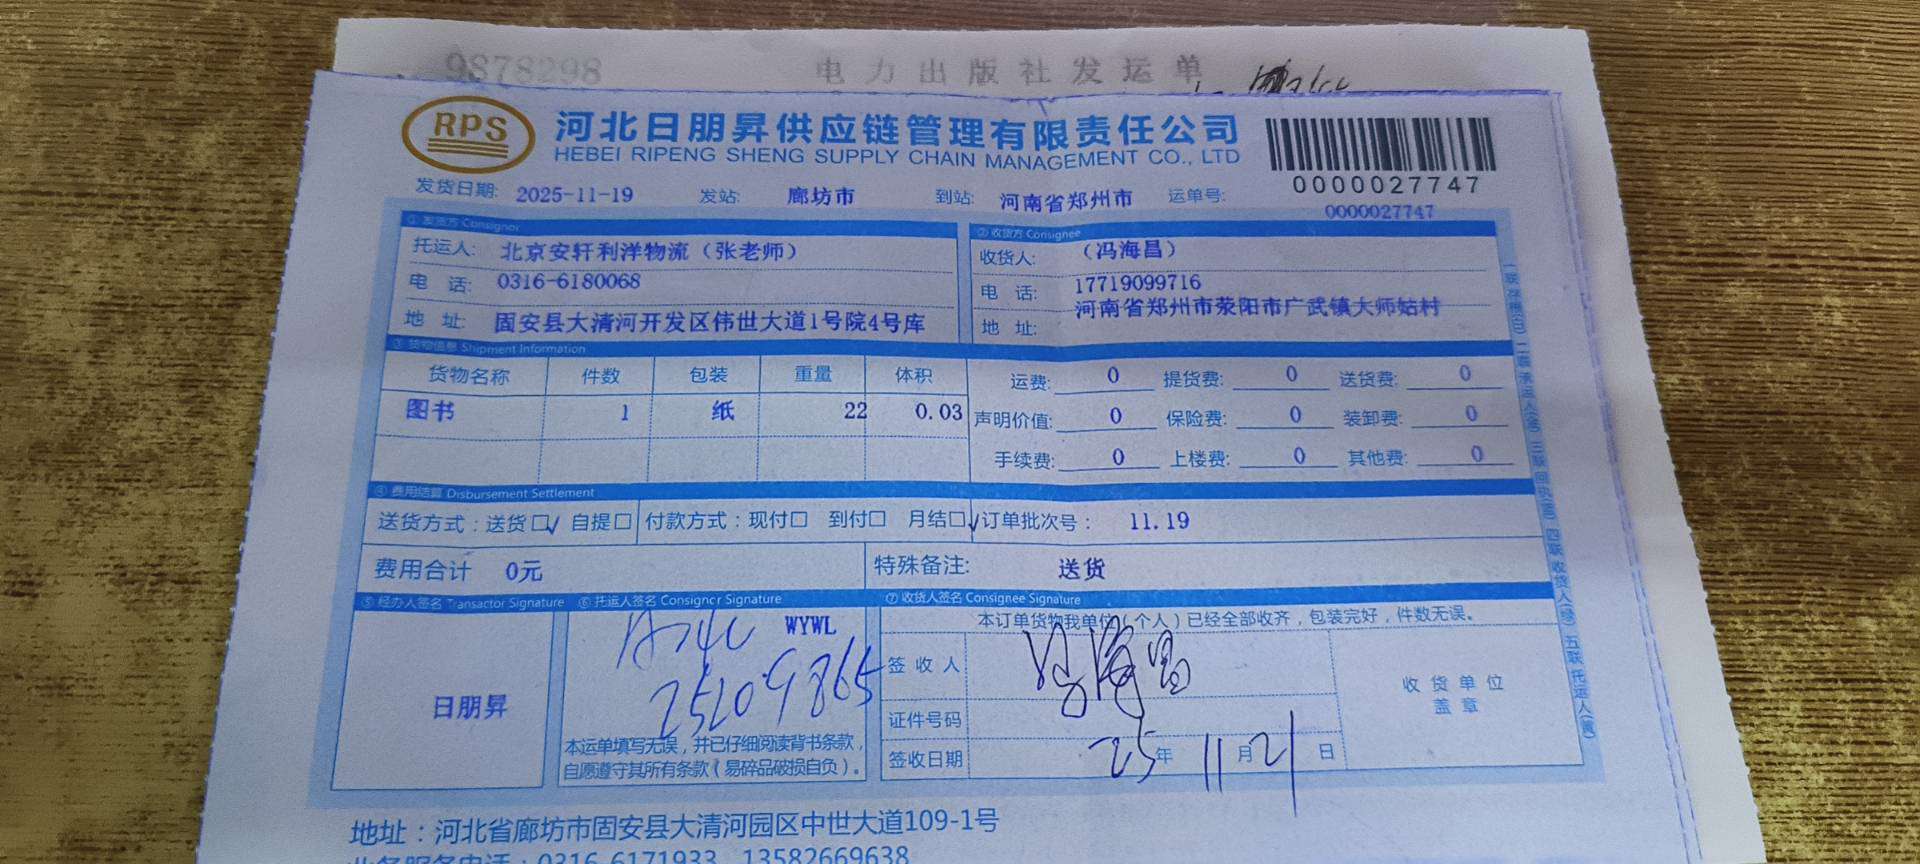 9878298 电力出版社发运单
RPS 河北日朋昇供应链管理有限责任公司
HEBEI RIPENG SHENG SUPPLY CHAIN MANAGEMENT CO., LTD
0000027747
发货日期: 2025-11-19 发站: 廊坊市 到站: 河南省郑州市 运单号: 0000027747
① 发货方 Consignor
托运人: 北京安轩利洋物流（张老师）
电 话: 0316-6180068
地 址: 固安县大清河开发区伟世大道1号院4号库
② 收货方 Consignee
收货人: （冯海昌）
电 话: 17719099716
地 址: 河南省郑州市荥阳市广武镇大师姑村
③ 货物信息 Shipment Information
货物名称 件数 包装 重量 体积
图书 1 纸 22 0.03
运费: 0 提货费: 0 送货费: 0
声明价值: 0 保险费: 0 装卸费: 0
手续费: 0 上楼费: 0 其他费: 0
④ 费用结算 Disbursement Settlement
送货方式：送货□√ 自提□ 付款方式：现付□ 到付□ 月结□√ 订单批次号： 11.19
费用合计 0元 特殊备注: 送货
⑤ 经办人签名 Transactor Signature ⑥ 托运人签名 Consignor Signature ⑦ 收货人签名 Consignee Signature
日朋昇
WYWL
25209865
本运单填写无误，并已仔细阅读背书条款，
自愿遵守其所有条款（易碎品破损自负）。
本订单货物我单位（个人）已经全部收齐，包装完好，件数无误。
签 收 人 冯海昌
证件号码
签收日期 25年 11月21日
收货单位
盖章
地址：河北省廊坊市固安县大清河园区中世大道109-1号
业务服务电话：0316-6171933 13582669638